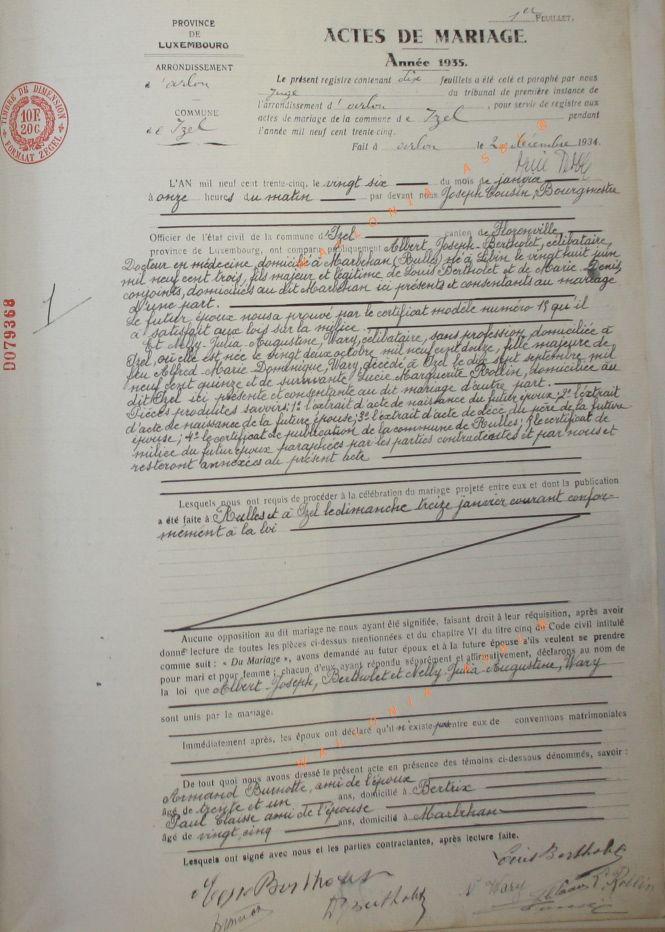 1er FEUILLET.
PROVINCE
DE
LUXEMBOURG
ARRONDISSEMENT
d'arlon
COMMUNE
de Izel
ACTES DE MARIAGE.
Année 1935.
Le présent registre contenant dix feuillets a été coté et paraphé par nous
Juge du tribunal de première instance de
l'arrondissement d'arlon, pour servir de registre aux
actes de mariage de la commune de Izel pendant
l'année mil neuf cent trente-cinq.
Fait à arlon le 2 décembre 1934.
TIMBRE DE DIMENSION
10F
20C
FORMAAT ZEGEL
D079368
1
L'AN mil neuf cent trente-cinq, le vingt six du mois de janvier
à onze heures du matin par devant nous Joseph Cousin, Bourgmestre
Officier de l'état civil de la commune d'Izel canton de Florenville
province de Luxembourg, ont comparu publiquement Albert, Joseph-Bertholet, célibataire,
Docteur en médecine, domicilié à Marbehan (Rulles) né à Libin, le vingt huit juin
mil neuf cent trois, fils majeur et légitime de Louis Bertholet et de Marie Denis,
conjoints, domiciliés au dit Marbehan ici présents et consentants au mariage
d'une part.
Le futur époux nous a prouvé par le certificat modèle numéro 15 qu'il
a satisfait aux lois sur la milice.
Et Nelly-Julia Augustine, Wary, célibataire, sans profession, domiciliée à
Izel, où elle est née le vingt deux octobre mil neuf cent douze, fille majeure de
feu Alfred Marie Dominique, Wary, décédé à Izel le dix sept septembre mil
neuf cent quinze et de survivante Lucie Marguerite Rollin, domiciliée au
dit Izel ici présente et consentante au dit mariage d'autre part.
Pièces produites savoir: 1° l'extrait d'acte de naissance du futur époux; 2° l'extrait
d'acte de naissance de la future épouse; 3° l'extrait d'acte de décè du père de la future
épouse; 4° le certificat de publication de la commune de Rulles; 5° le certificat de
milice du futur époux paraphées par les parties contractantes et par nous et
resteront annexées au présent acte
Lesquels nous ont requis de procéder à la célébration du mariage projeté entre eux et dont la publication
a été faite à Rulles et à Izel le dimanche treize janvier courant confor-
mément à la loi
Aucune opposition au dit mariage ne nous ayant été signifiée, faisant droit à leur réquisition, après avoir
donné lecture de toutes les pièces ci-dessus mentionnées et du chapitre VI du titre cinq du Code civil intitulé
comme suit : « Du Mariage », avons demandé au futur époux et à la future épouse s'ils veulent se prendre
pour mari et pour femme ; chacun d'eux ayant répondu séparément et affirmativement, déclarons au nom de
la loi que Albert-Joseph, Bertholet et Nelly-Julia-Augustine, Wary
sont unis par le mariage.
Immédiatement après, les époux ont déclaré qu'il n'existe pas entre eux de conventions matrimoniales
De tout quoi nous avons dressé le présent acte en présence des témoins ci-dessous dénommés, savoir :
Armand Burnotte, ami de l'époux
âgé de trente et un ans, domicilié à Bertrix
Paul Claisse ami de l'épouse
âgé de vingt cinq ans, domicilié à Marbehan
Lesquels ont signé avec nous et les parties contractantes, après lecture faite.
Louis Bertholet
N Wary
L. Rollin
Bertholet
WALLONIA ASBL
WALLONIA ASBL